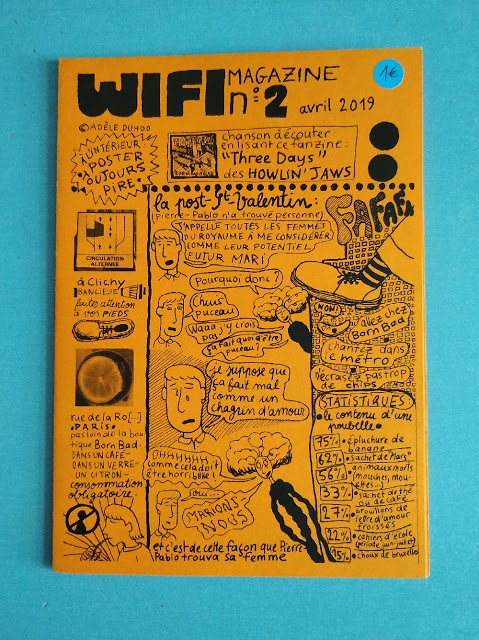 WIFI MAGAZINE
n°2 avril 2019
1€
© ADÈLE DUHOO
À L'INTÉRIEUR:
POSTER
TOUJOURS
PIRE
chanson à écouter
en lisant ce fanzine:
"Three Days"
des HOWLIN' JAWS
CIRCULATION
ALTERNÉE
à Clichy
BANLIEUE
faites attention
à vos PIEDS
rue de la Ro[...]
•PARIS•
pas loin de la bou
tique Born Bad.
DANS UN CAFÉ-
DANS UN VERRE-
UN CITRON-
consommation
obligatoire.
la post-St-Valentin:
(Pierre-Pablo n'a trouvé personne)
J'APPELLE TOUTES LES FEMMES
DU ROYAUME À ME CONSIDÉRER
COMME LEUR POTENTIEL
FUTUR MARI
Pourquoi donc?
Chuis
puceau
Waaa j'y crois
pas
ça fait quoi d'être
puceau?
je suppose que
ça fait mal
comme un
chagrin d'amour
OHHHHHH
comme cela doit
être horrible!
oui...
MARIONS
NOUS
et c'est de cette façon que Pierre-
Pablo trouva sa femme
FAFAFA
NON!
allez chez
Born Bad
chantez dans
le métro
écrasez pas trop
de chips
STATISTIQUES
•le contenu d'une
poubelle•
75% •épluchure de
banane
62% •sachet de "Mars"
56% •animaux morts
(mouches, mou-
ettes...)
33% •sachet de thé
ou de café
27% •brouillons de
lettre d'amour
froissés
22% •cahiers d'école
(période juin-juillet)
15% •choux de bruxelles